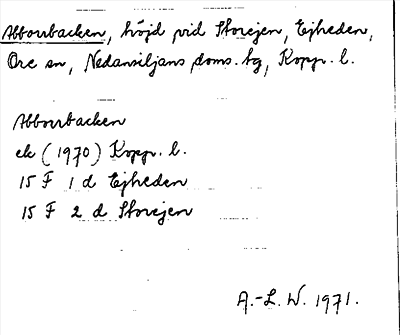 Abborrbacken, höjd vid Storejen, Ejheden,
Ore sn, Nedansiljans doms. tg, Kopp. l.
Abborrbacken
ek (1970) Kopp. l.
15 F 1 d Ejheden
15 F 2 d Storejen
A.-L. W. 1971.